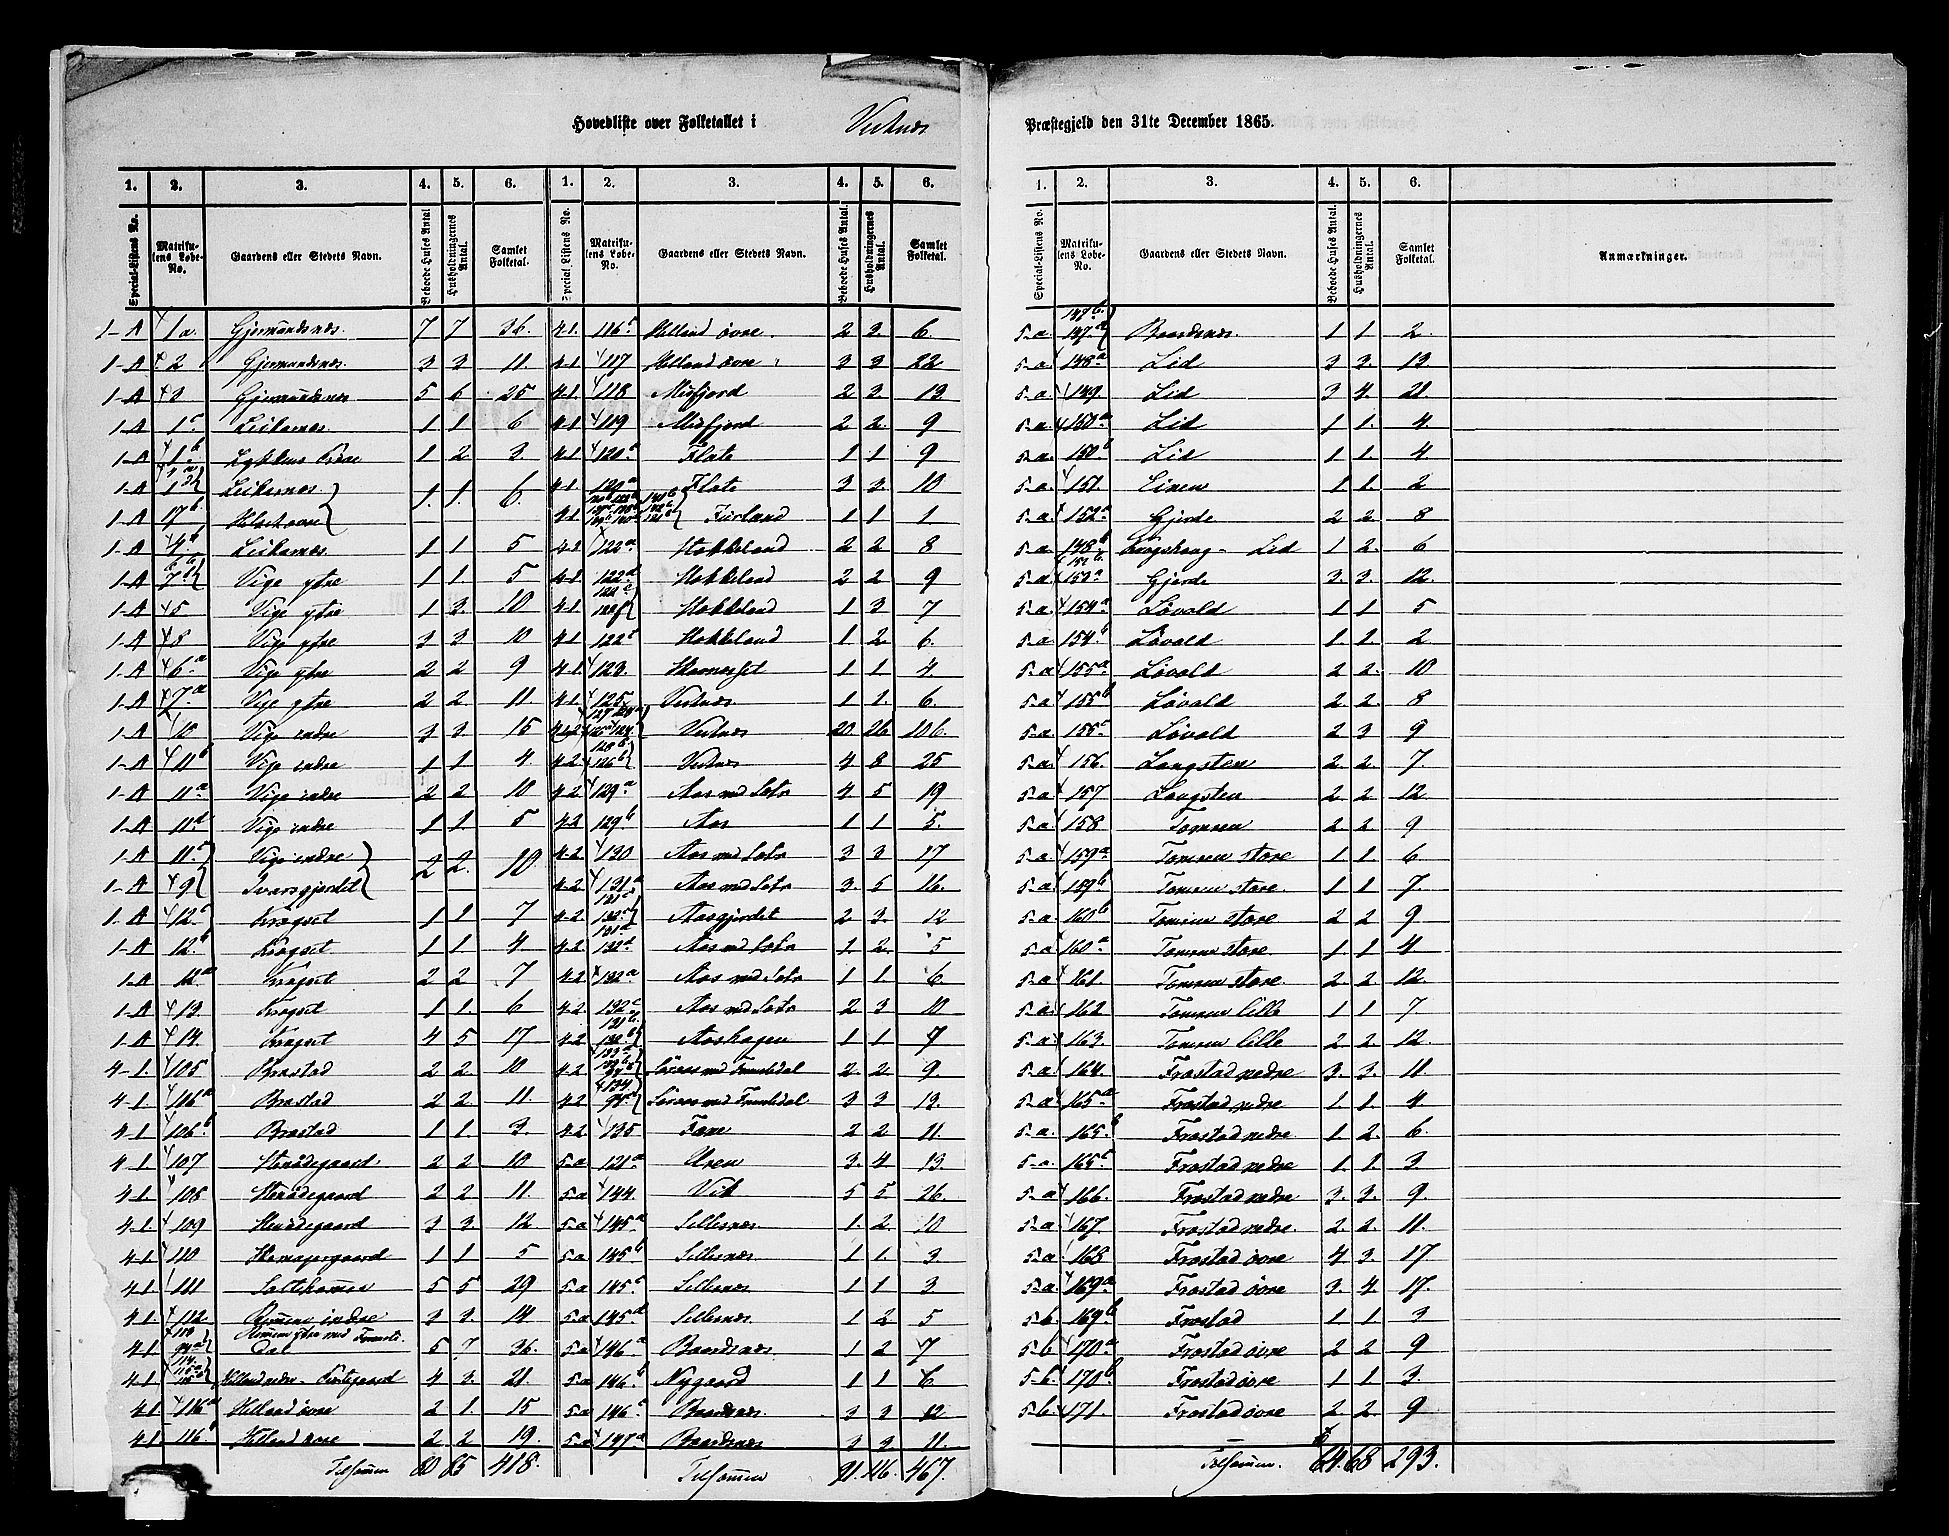 Hovedliste over Folketallet i Vestnes Præstegjeld den 31te December 1865.
1. 2. 3. 4. 5. 6. 1. 2. 3. 4. 5. 6.
Special-Listens No. Matrikulens Løbe-No. Gaardens eller Stedets Navn. Beboede Huses Antal Husholdningernes Antal. Samlet Folketal. Special-Listens No. Matrikulens Løbe-No. Gaardens eller Stedets Navn. Beboede Huses Antal. Husholdningernes Antal. Samlet Folketal.
1-A 1a. Gjermundsnæs. 7 7 36. 4-1. 116c Helland øvre. 2 2. 6.
1-A 2 Gjermundsnæs. 3 3 11. 4-1 117 Helland øvre. 3 3 22
1-A 3 Gjermundsnæs 5 6 25 4-1 118 Misfjord 2 2. 13
1-A 1c Leikarnes. 1 1 6 4-1 119 Misfjord 2 2. 9
1-A 1b Lykkens Prøve 1 2. 3. 4-1 120b Flate 1 1 9
1-A 1d Leikarnes. 1. 1. 6. 4-1. 120a Flate 3 3. 10
1-A 17b 4-1 Furland 1 1 1
1-A 4b Leikarnes. 1 1 5 4-1 122a Stokkeland 2 2 8
1-A 7d Vige ytre 1 1. 5 4-1 122d Stokkeland 2 2 9
1-A 5 Vige ytre 1 3. 10 4-1 122f Stokkeland 1 3 7
1-A 8 Vige ytre 3 3 10 4-1 122c Stokkeland 1 2 6.
1-A 6a Vige ytre 2 2 9 4-1 123. 1 1 4.
1-A 7a Vige ytre 2 2. 11 4-1 125. Vestnæs 1 1. 6.
1-A 10 Vige indre 3 3. 15 4-2 Vestnæs 20 26 106.
1-A 11b Vige indre 1 1 4. 4-2 126b Vestnæs 4 8 25
1-A 11a Vige indre 2 2 10 4-2 129a Aas med Sæter 4 5 19
1-A 11d Vige indre 1 1. 5 4-2 129b Aas 1 1 5.
1-A 11c Vige indre 2 2. 10. 4-2 130 Aas med Sæter 3 3 17
1-A 9 Ivarsgjerdet 4-2 131a Aas med Sæter 3. 5 16.
1-A 12c Kragset 1 1 7 4-2 132 Aasgjerdet 2 3. 12
1-A 12b Kragset 1 1. 4 4-2 132d Aas med Sæter 1. 2. 5
1-A 12a Kragset 2 2 7 4-2 132a Aas med Sæter 1 1. 6
1-A 13. Kragset 1 1. 6 4-2 132c Aas med Sæter 2 3 10
1-A 14. Kragset 4 5 17 4-2 132b Aashagen 1 1 7
4-1. 105 Brastad 2 2. 10 4-2 2. 2 9
4-1. 106a Brastad 2 2. 11. 4-2 134 3 3 13.
4-1 106b Brastad 1 1. 3. 4-2 135 2 2 11.
4-1 107 2 2 10 5a 121a Uren 3. 4 13
4-1 108 2 2 11. 5a 144. Vik 5 5. 26
4-1 109 3 3. 12 5a 145a Sellesnæs 1. 2. 10
4-1 110 1 1 5 5a 145b Sellesnæs 1 1. 3
4-1 111 5 5 29 5a 145c Sellesnæs 1 1 3
4-1. 112. indre 3 3. 14 5a 145d Sellesnæs. 1 2 5
4-1 Dal 5 7 36. 5a 146a Baardsnæs 1 2 7
4-1 Helland nedre 4 3. 21. 5a 146b Nygaard 1 1 6
4-1 116a Helland øvre 2 1. 15 5a 146c Baardsnæs. 3 3 12
4-1. 116b Helland øvre 2 2 19. 5a 147a Baardsnæs 3 3 11.
Tilsammen 80 85 418. Tilsammen 91. 116. 467.
1. 2. 3. 4. 5. 6.
Special-Listens No. Matrikulens Løbe-No. Gaardens eller Stedets Navn. Beboede Huses Antal. Husholdningernes Antal. Samlet Folketal. Anmærkninger.
147b
5a. 147c Baardsnæs. 1 1 2.
5a 148a Lid 3 3. 13
5a 149. Lid 3 4. 21.
5a. 150a Lid 1 1. 4.
5a. 150b Lid 1 1. 4
5a 151. Einen 1 1. 2
5a 152a Gjerde 2 2. 8
5a 148b Lid 1 2. 6
5a Gjerde 3. 3. 12.
5a. 154a Løvold 1 1 5
5a. 154b Løvold 1. 1. 2
5a. 155a Løvold 2 2. 10
5a 155b Løvold 2 2. 8
5a. 155c Løvold 2 3 9
5a 156. Langsten 2. 2. 7
5a 157 Langsten 2 2. 12.
5a 158 Tomren 2 2 9
5a 159a Tomren store 1 1 6
5a 159b Tomren store 1 1 7.
5a 160b Tomren store 2 2 9
5a. 160a Tomren store. 1 1 4
5a 161. Tomren store 2 2 12.
5a 162 Tomren lille 1 1 7.
5a 163. Tomren lille 2 2 12.
5a. 164. Frostad nedre 3. 3. 11
5a. 165a Frostad nedre 1. 1. 4
5a. 165b Frostad nedre. 1. 2. 6.
5a. 165c Frostad nedre 1. 1. 3
5a 166. Frostad nedre 3. 3. 9
5a. 167. Frostad nedre 2. 2. 11.
5a. 168 Frostad øvre 4 3. 17
5a. 169a Frostad øvre 3. 4. 17.
5b. 169b Frostad 1 1 3
5b 170a Frostad øvre 2 2 9
5b. 170b Frostad øvre 1 1 3.
5b. 171. Frostad øvre 2 2 9
Tilsammen. 64. 68 293.